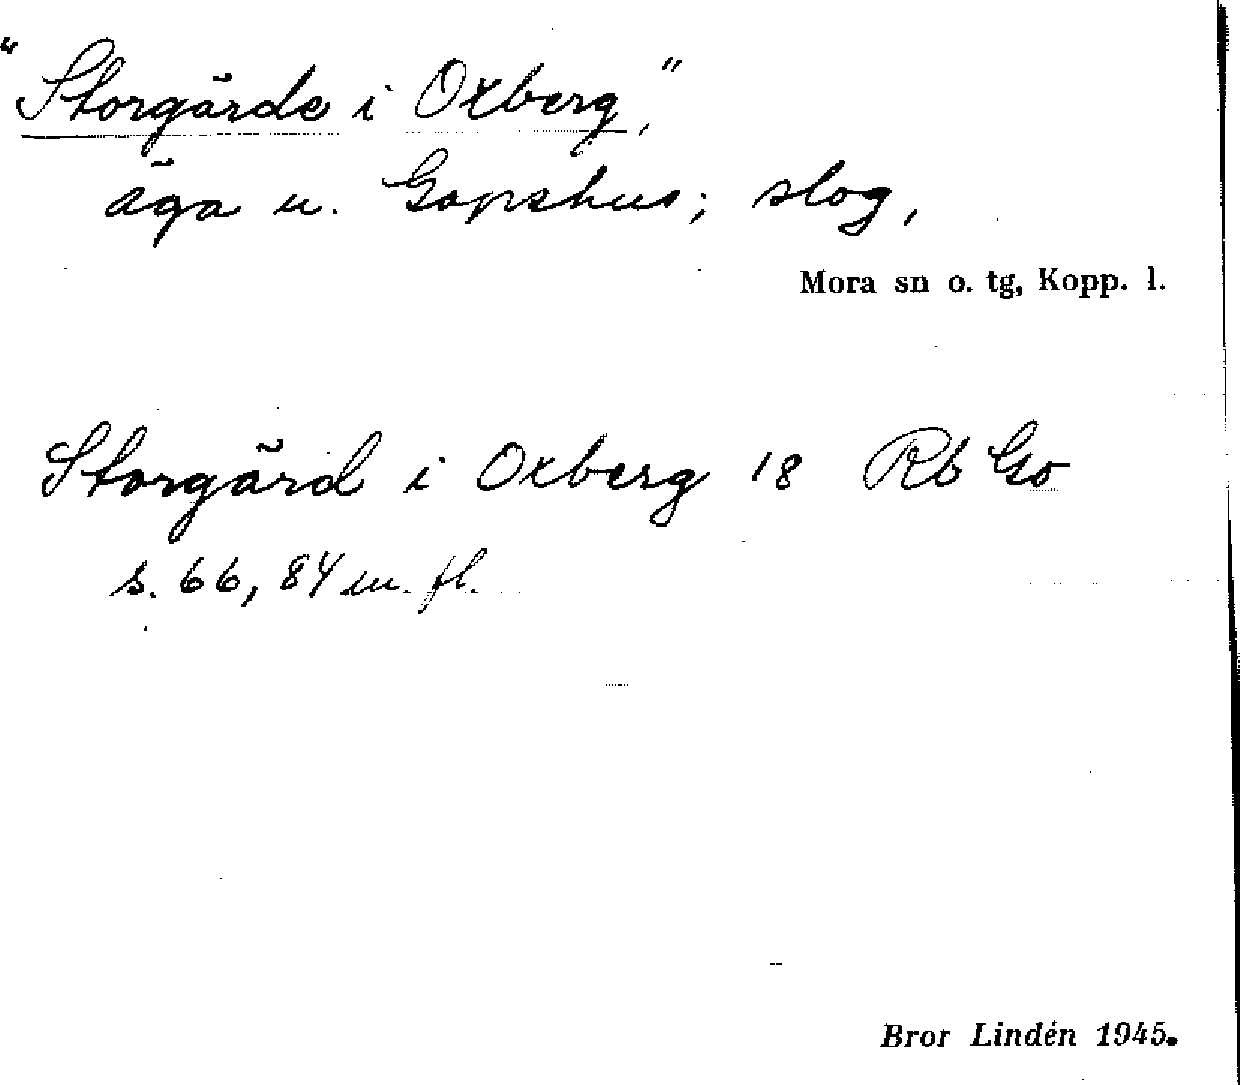 "Storgärde i Oxberg,"
äga u. Gopshus; slog,
Mora sn o. tg, Kopp. l.
Storgärd i Oxberg 18 Rb Go
s. 66, 84 m. fl.
Bror Lindén 1945.